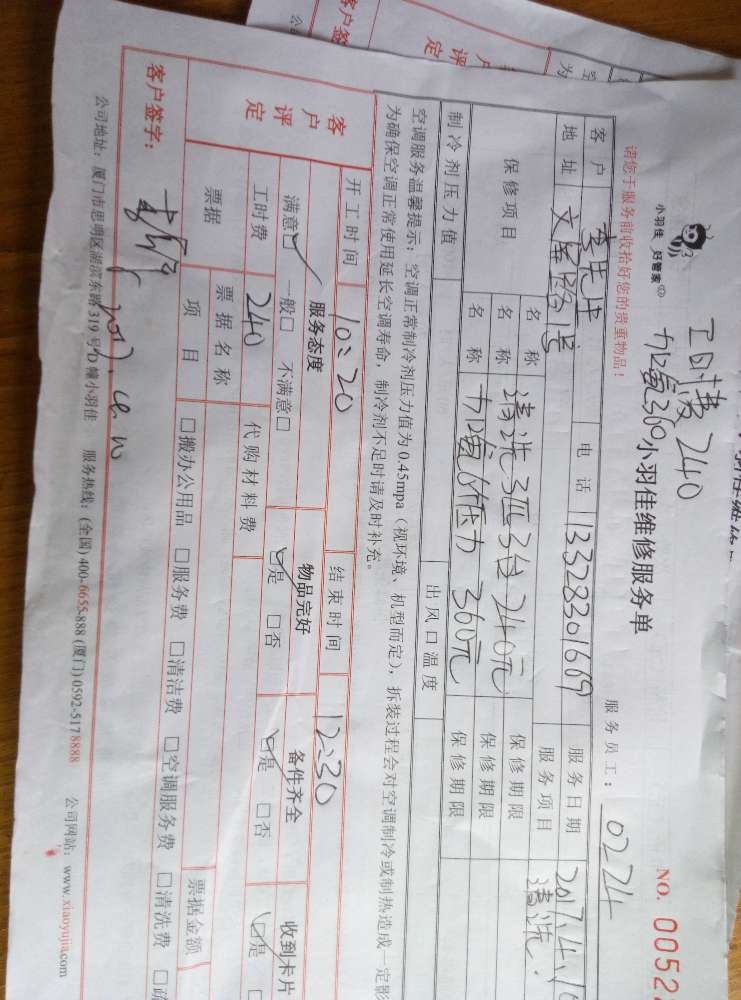 小羽佳 好管家
工时费240
加氟360
小羽佳维修服务单
NO. 0052
请您于服务前收拾好您的贵重物品！
服务员工：0224
客户 李先生 电话 13328301669 服务日期 2017.4.1
地址 文屏路 服务项目 清洗.
保修项目 名称 清洗3匹3台240元 保修期限
名称 加氟 压力 360元 保修期限
制冷剂压力值 出风口温度 保修期限
空调服务温馨提示：空调正常制冷剂压力值为0.45mpa（视环境、机型而定），拆装过程会对空调制冷或制热造成一定影
为确保空调正常使用延长空调寿命，制冷剂不足时请及时补充。
开工时间 10:20 结束时间 12:30
客户评定 服务态度 物品完好 备件齐全 收到卡片
满意☑ 一般□ 不满意□ ☑是 □否 ☑是 □否 ☑是
工时费 240 代购材料费
票据 票据名称 票据金额
项目 □搬办公用品 □服务费 □清洁费 □空调服务费 □清洗费 □疏
客户签字：
公司地址：厦门市思明区湖滨东路319号D幢小羽佳 服务热线：(全国)400-6655-888 (厦门)0592-5178888 公司网站：www.xiaoyujia.com